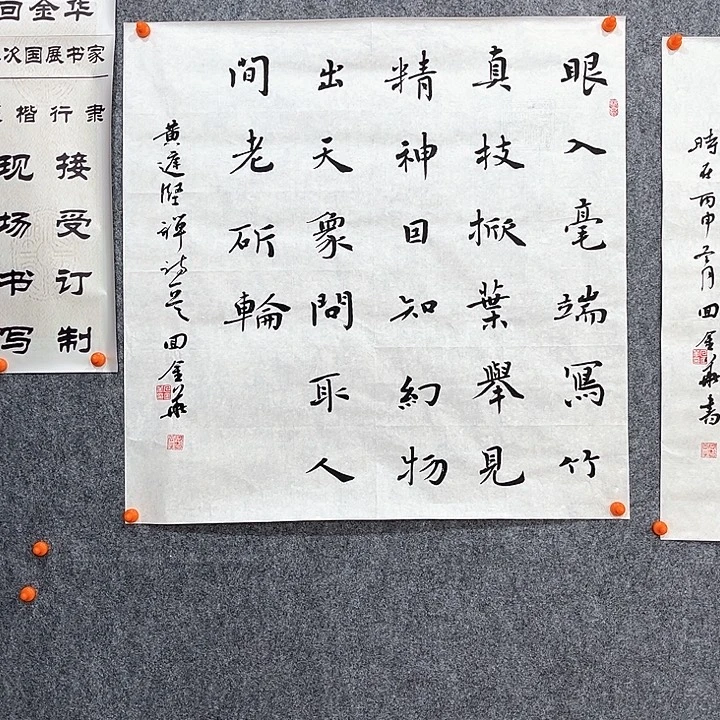 回金华
次国展书家
楷行隶
现场书写
接受订制
眼入毫端寫竹
真枝掀葉舉見
精神囙知幻物
出无象問取人
間老斫輪
黄庭堅禪詩一首 回金華
時在丙申 月回金華書